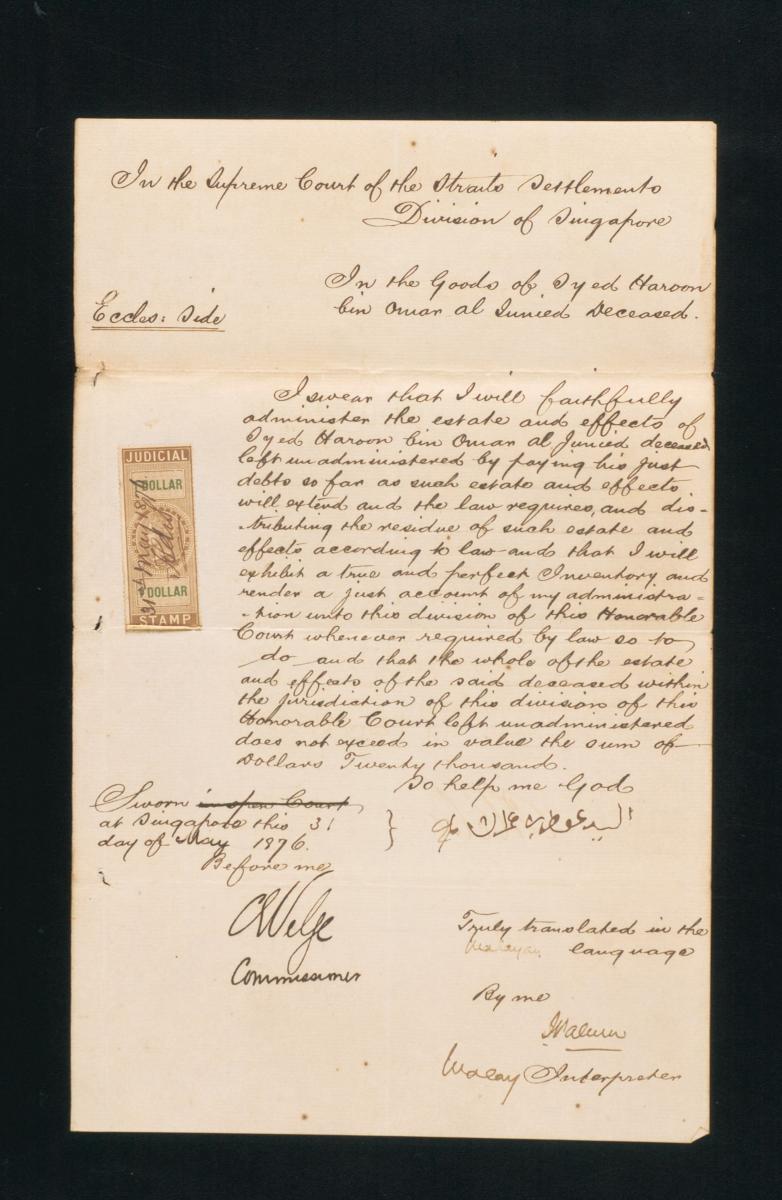 In the Supreme Court of the Straits Settlements
Division of Singapore
In the Goods of Syed Haroon
bin Omar al Junied Deceased.
Eccles: Side
I swear that I will faithfully
administer the estate and effects of
Syed Haroon bin Omar al Junied deceased
left unadministered by paying his just
debts so far as such estate and effects
will extend and the law requires, and dis-
-tributing the residue of such estate and
effects according to law and that I will
exhibit a true and perfect Inventory and
render a just account of my administra-
-tion unto this division of this Honorable
Court whenever required by law so to
do and that the whole of the estate
and effects of the said deceased within
the jurisdiction of this division of this
Honorable Court left unadministered
does not exceed in value the sum of
Dollars Twenty thousand.
So help me God
JUDICIAL
DOLLAR
31st May 1876
DOLLAR
STAMP
Sworn in open Court
at Singapore this 31
day of May 1876.
Before me
السيد
Commissioner
Truly translated in the
Malayan language
By me
Malay Interpreter